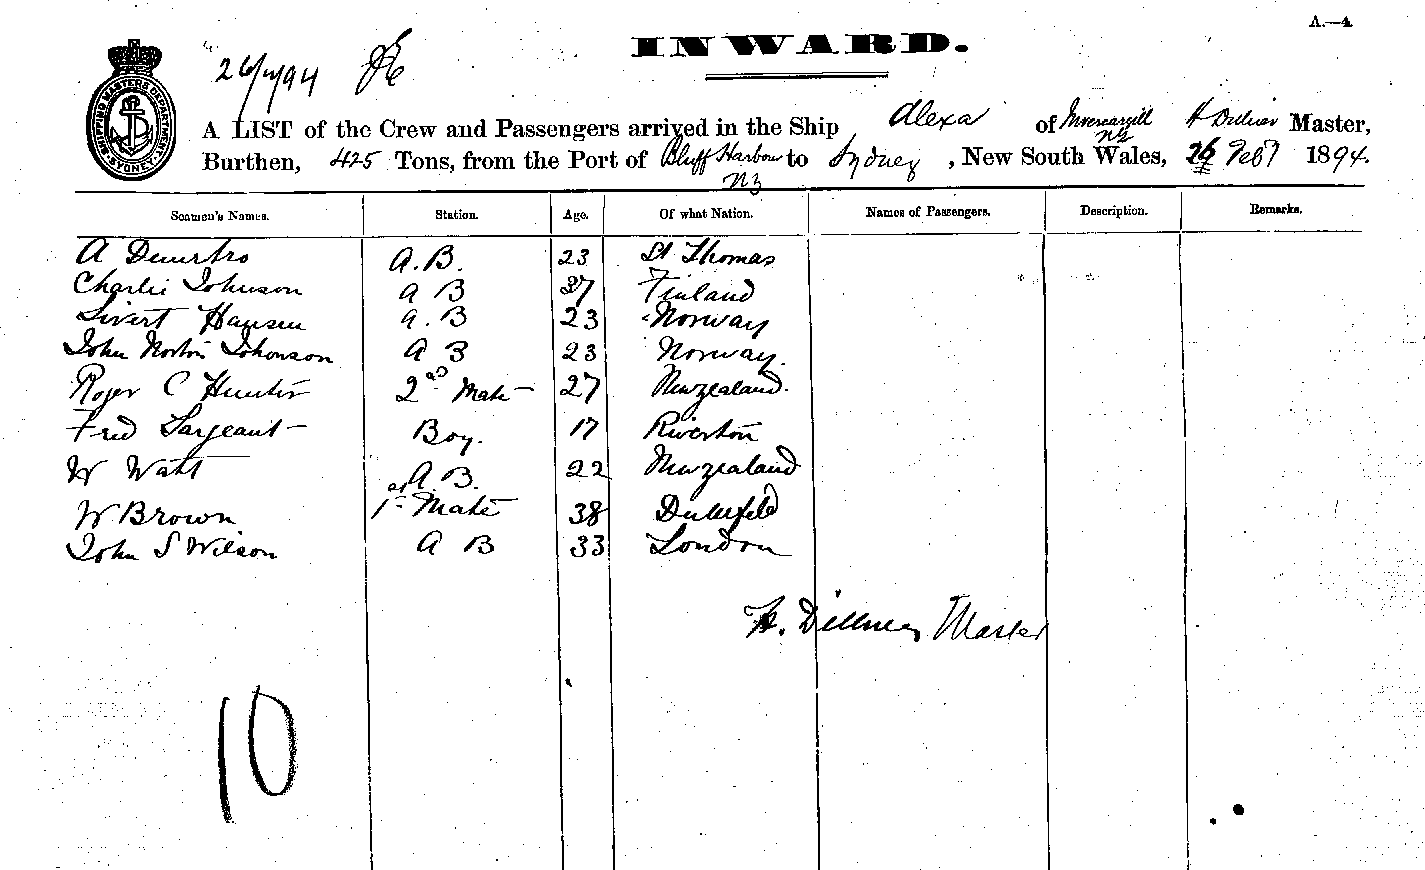 A.—4.
INWARD.
26/2/94
SHIPPING MASTERS DEPARTMENT SYDNEY
A LIST of the Crew and Passengers arrived in the Ship Alexa of Invercargill NZ H Master,
Burthen, 425 Tons, from the Port of Bluff Harbour NZ to Sydney, New South Wales, 26 Feby 1894.
Seamen's Names. Station. Age. Of what Nation. Names of Passengers. Description. Remarks.
A A.B. 23 St Thomas
Charlie Johnson A B 37 Finland
Sivert Hansen A.B 23 Norway
John Norton Johonson A B 23 Norway.
Roger C Hunter 2nd Mate 27 Newzealand.
Fred Sargeant Boy. 17 Riverton
W Watt A.B. 22 Newzealand
W Brown 1st Mate 38
John S Wilson A B 33 London
H. Master
10